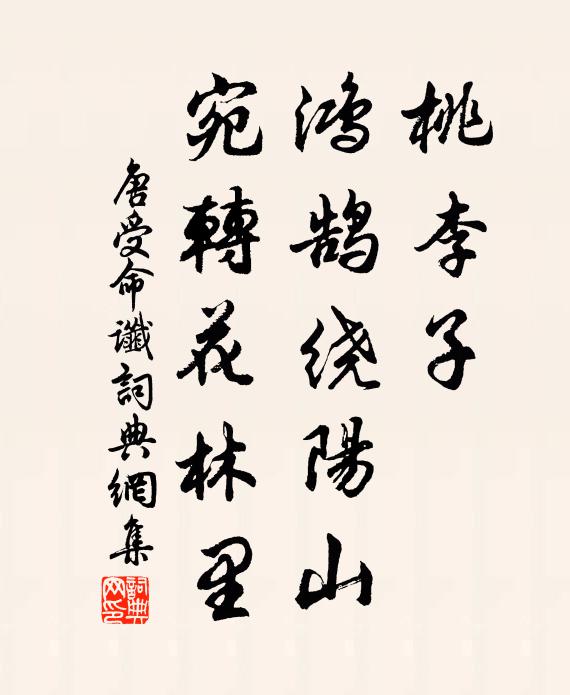 桃李子
鴻鹄绕陽山
宛轉花林里
唐受命讖詞典網集
詞典网印